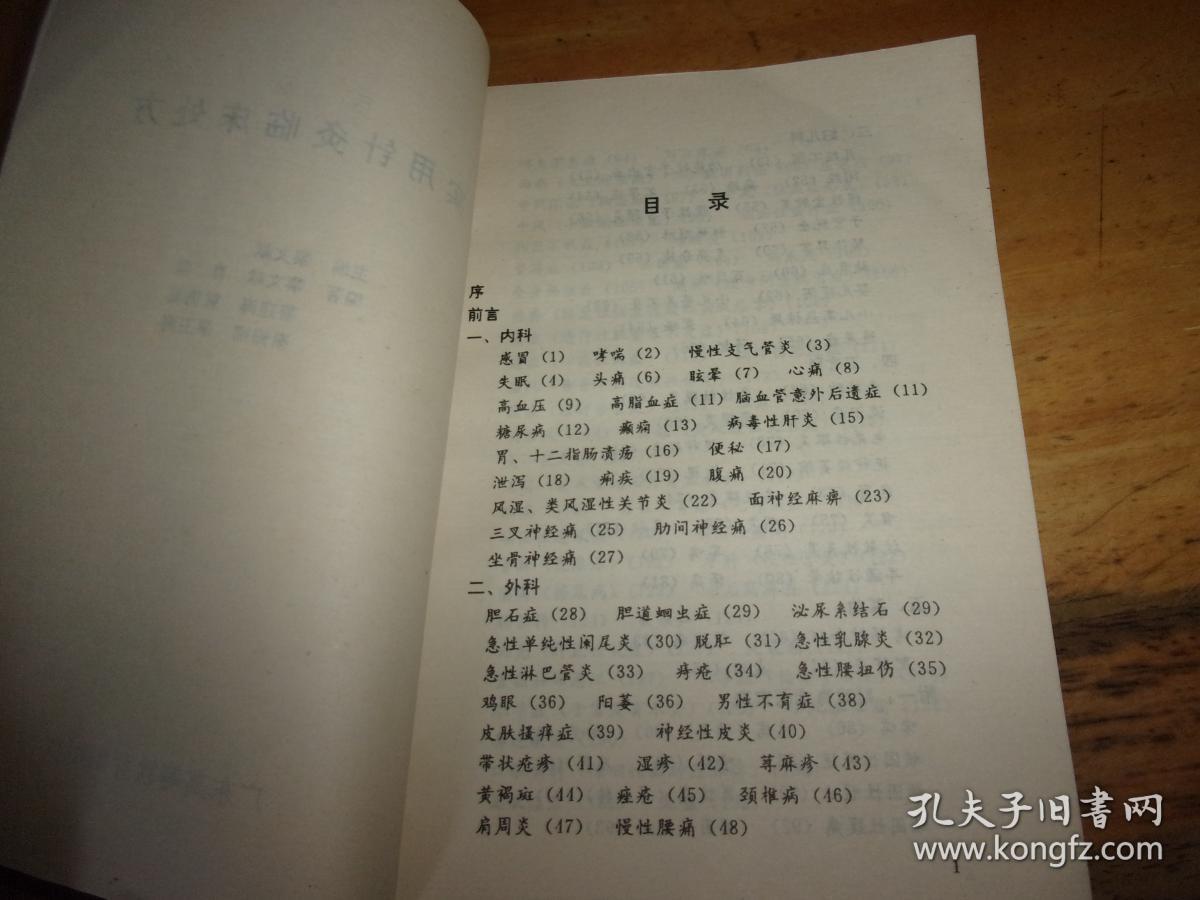 目 录
序
前言
一、内科
感冒（1） 哮喘（2） 慢性支气管炎（3）
失眠（4） 头痛（6） 眩晕（7） 心痛（8）
高血压（9） 高脂血症（11）脑血管意外后遗症（11）
糖尿病（12） 癫痫（13） 病毒性肝炎（15）
胃、十二指肠溃疡（16） 便秘（17）
泄泻（18） 痢疾（19） 腹痛（20）
风湿、类风湿性关节炎（22） 面神经麻痹（23）
三叉神经痛（25） 肋间神经痛（26）
坐骨神经痛（27）
二、外科
胆石症（28） 胆道蛔虫症（29） 泌尿系结石（29）
急性单纯性阑尾炎（30）脱肛（31）急性乳腺炎（32）
急性淋巴管炎（33） 痔疮（34） 急性腰扭伤（35）
鸡眼（36） 阳萎（36） 男性不育症（38）
皮肤搔痒症（39） 神经性皮炎（40）
带状疱疹（41） 湿疹（42） 荨麻疹（43）
黄褐斑（44） 痤疮（45） 颈椎病（46）
肩周炎（47） 慢性腰痛（48）
1
孔夫子旧书网
www.kongfz.com